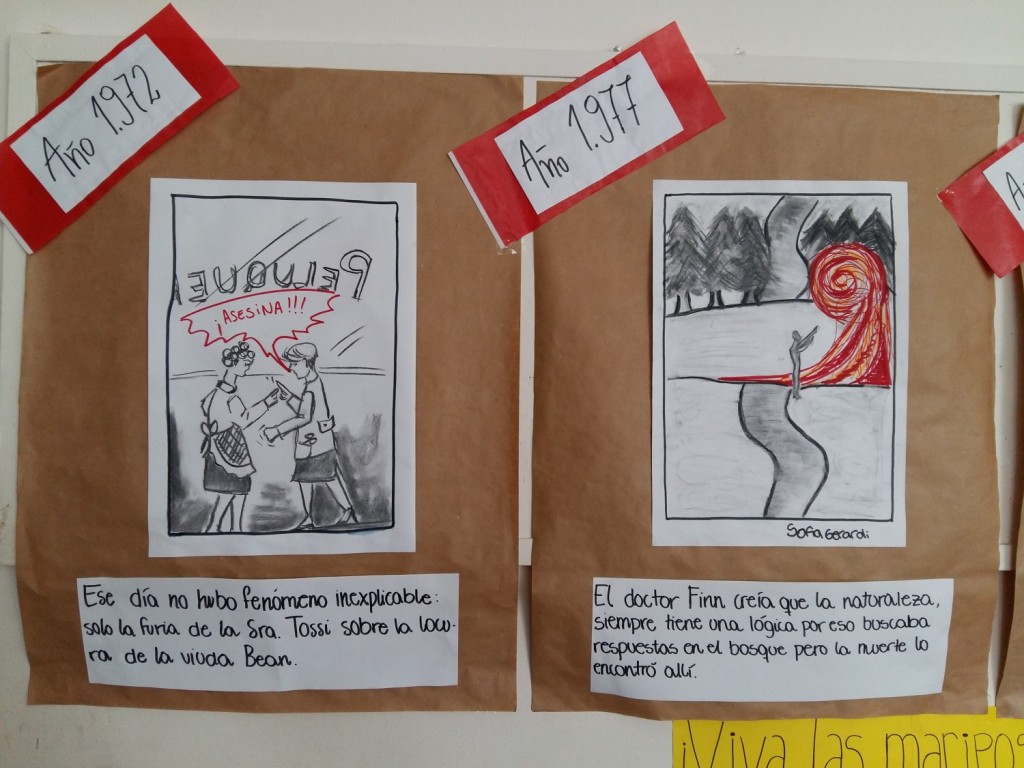 Año 1.972
¡ASESINA!!!
Ese día no hubo fenómeno inexplicable:
solo la furia de la Sra. Tossi sobre la locu-
ra de la viuda Bean.
Año 1.977
Sofa Gerardi
El doctor Finn creía que la naturaleza,
siempre tiene una lógica por eso buscaba
respuestas en el bosque pero la muerte lo
encontró allí.
A
¡Viva las maripos